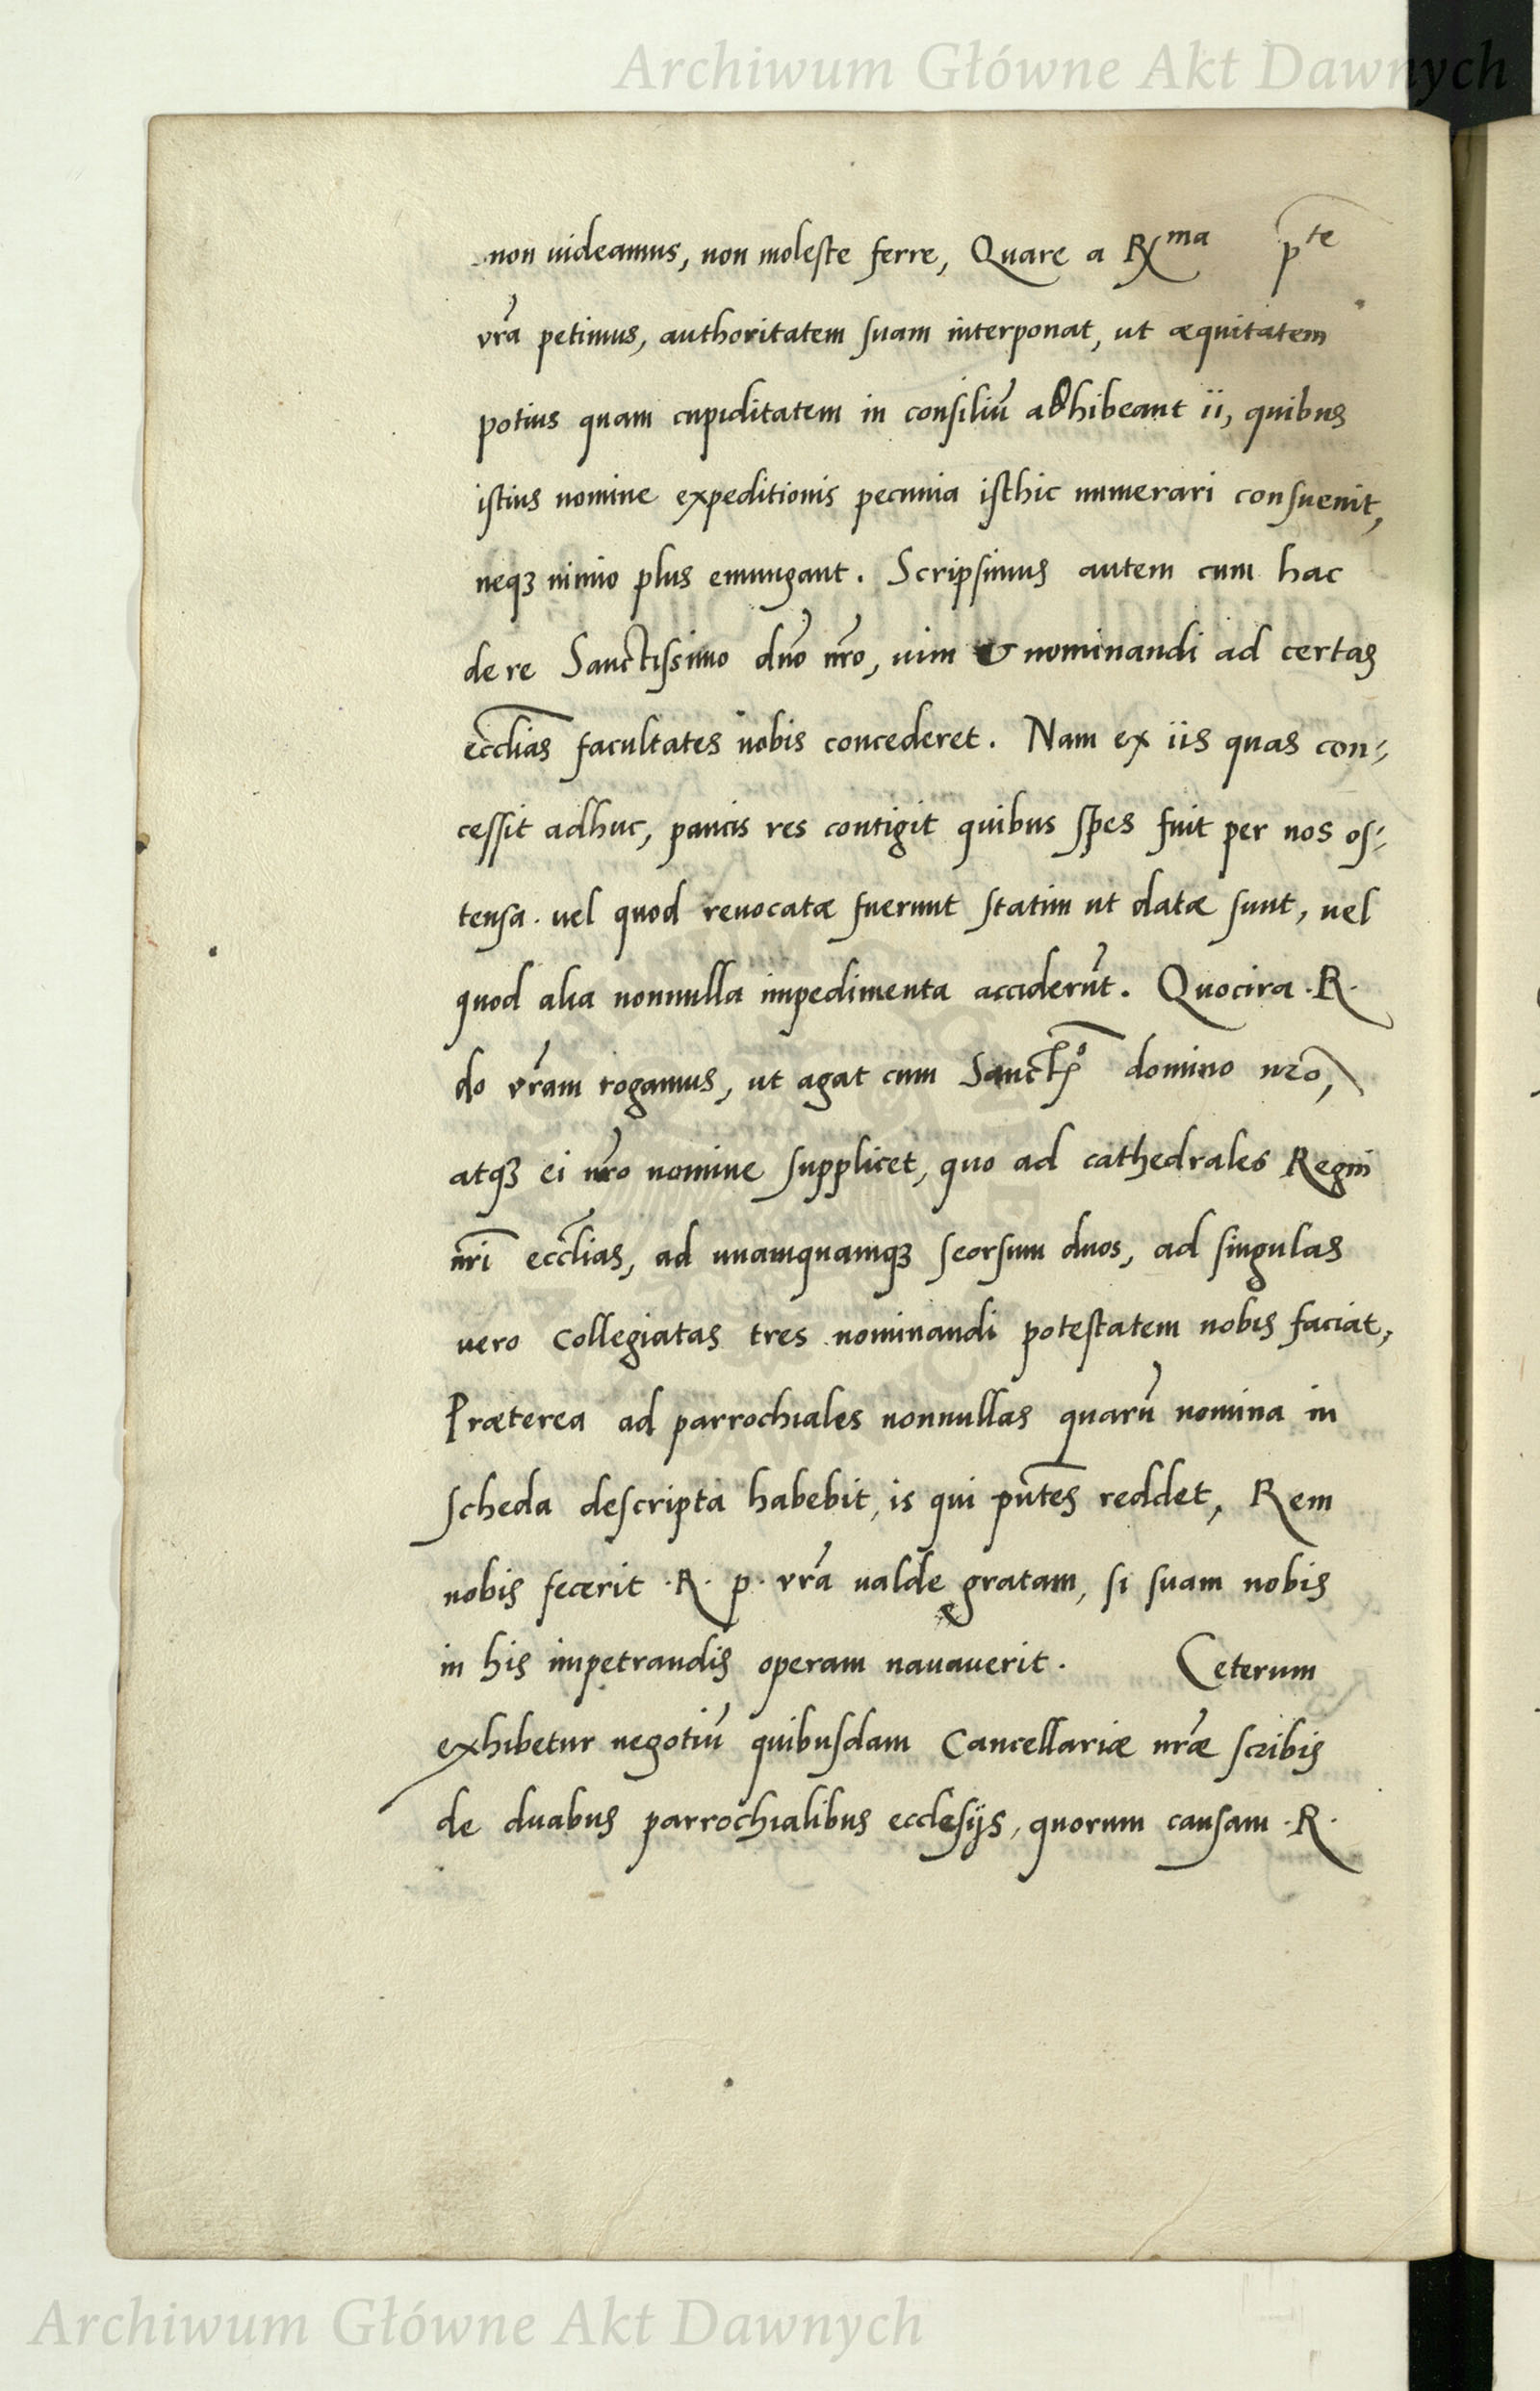 Archiwum Główne Akt Dawnych
non uideamus, non moleste ferre, Quare a R^ma p^te
vr̃a petimus, authoritatem suam interponat, ut æquitatem
potius quam cupiditatem in consiliũ adhibeant ii, quibus
istius nomine expeditionis pecunia isthic numerari consueuit,
neqꝫ nimio plus emungant. Scripsimus autem cum hac
de re Sanctissimo dño nr̃o, uim & nominandi ad certas
eccl̃ias facultates nobis concederet. Nam ex iis quas con-
cessit adhuc, paucis res contigit quibus spes fuit per nos os-
tensa. uel quod reuocatæ fuerunt statim ut datæ sunt, uel
quod alia nonnulla impedimenta acciderũt. Quocira .R.
do vr̃am rogamus, ut agat cum Sanct^mo domino nr̃o,
atqꝫ ei nr̃o nomine supplicet, quo ad cathedrales Regni
nr̃i eccl̃ias, ad unamquamqꝫ seorsum duos, ad singulas
uero collegiatas tres nominandi potestatem nobis faciat,
Præterea ad parrochiales nonnullas quarũ nomina in
scheda descripta habebit, is qui pñtes reddet, Rem
nobis fecerit .R. p. vr̃a ualde gratam, si suam nobis
in his impetrandis operam nauauerit. Ceterum
exhibetur negotiũ quibusdam Cancellariæ nr̃æ scribis
de duabus parrochialibus ecclesijs, quorum causam .R.
Archiwum Główne Akt Dawnych